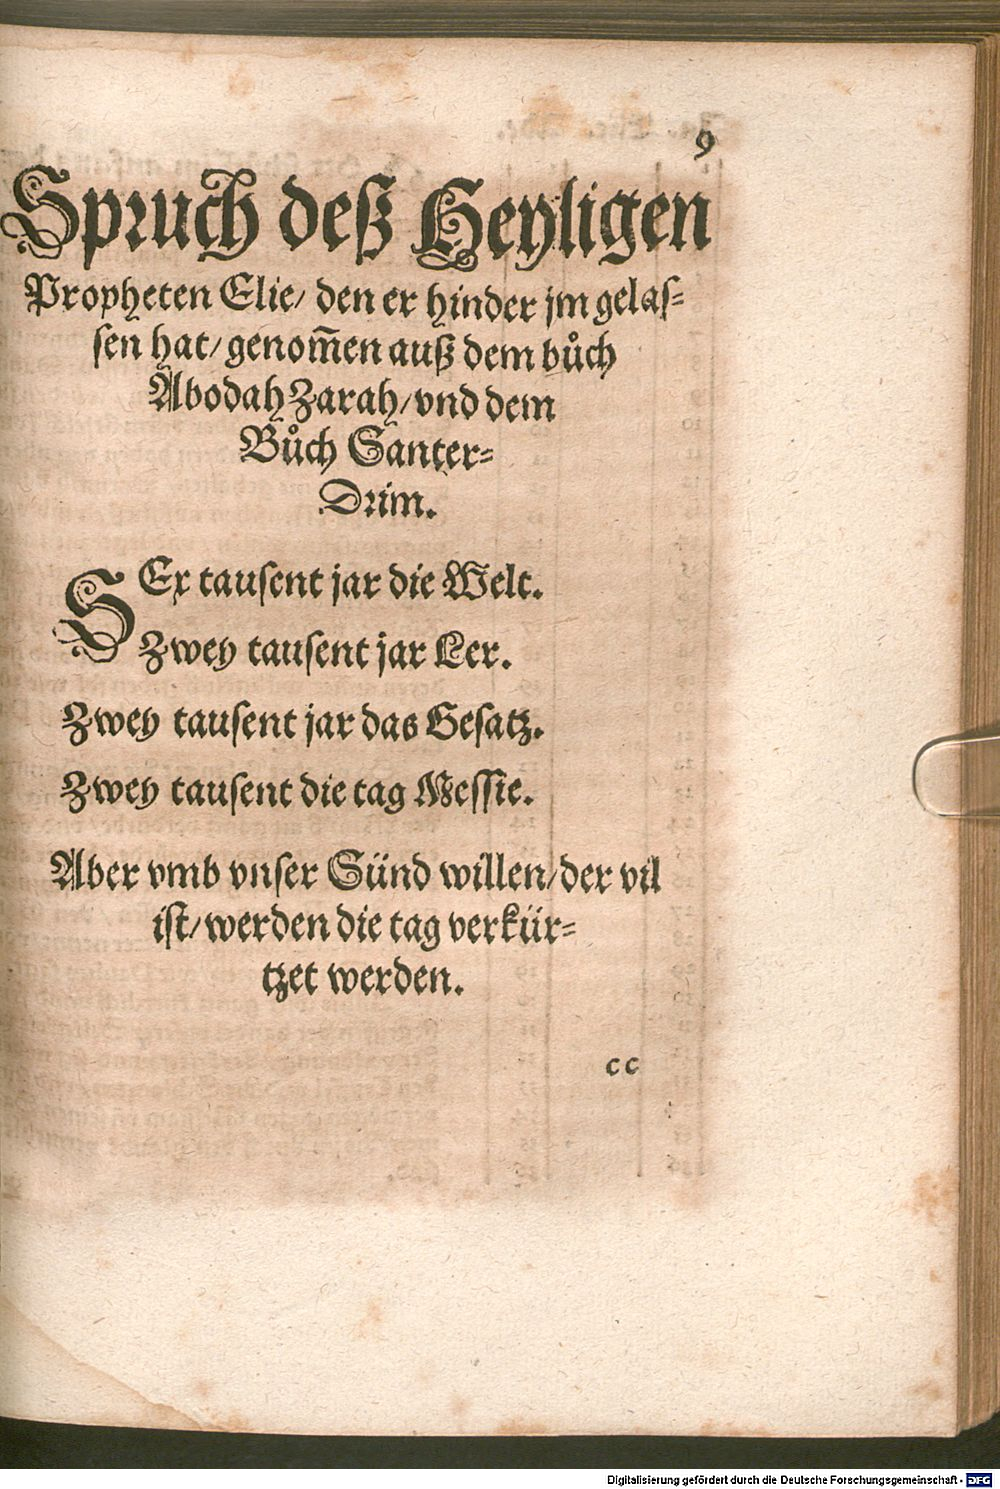 9
Spruch deß Heyligen
Propheten Elie/ den er hinder jm gelas-
sen hat/ genom̃en auß dem bůch
Abodah Zarah/ vnd dem
Bůch Santer-
Drim.
SEx tausent jar die Welt.
Zwey tausent jar Ler.
Zwey tausent jar das Gesatz.
Zwey tausent die tag Messie.
Aber vmb vnser Sünd willen/ der vil
ist/ werden die tag verkür-
tzet werden.
cc
Digitalisierung gefördert durch die Deutsche Forschungsgemeinschaft - DFG